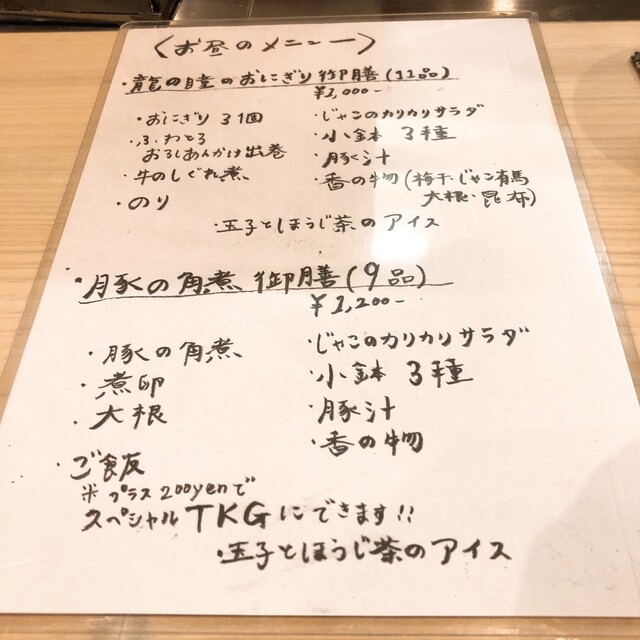 〈お昼のメニュー〉
・龍の瞳のおにぎり御膳(11品)
¥1,000-
・おにぎり 31個
・ふわとろ
おろしあんかけ出巻
・牛のしぐれ煮
・のり
・じゃこのカリカリサラダ
・小鉢 3種
・豚汁
・香の物(梅干・じゃこ有馬
大根・昆布)
・玉子とほうじ茶のアイス
・豚の角煮 御膳(9品)
¥1,200-
・豚の角煮
・煮卵
・大根
・ご飯
※プラス200yenで
スペシャルTKGにできます!!
・じゃこのカリカリサラダ
・小鉢 3種
・豚汁
・香の物
・玉子とほうじ茶のアイス